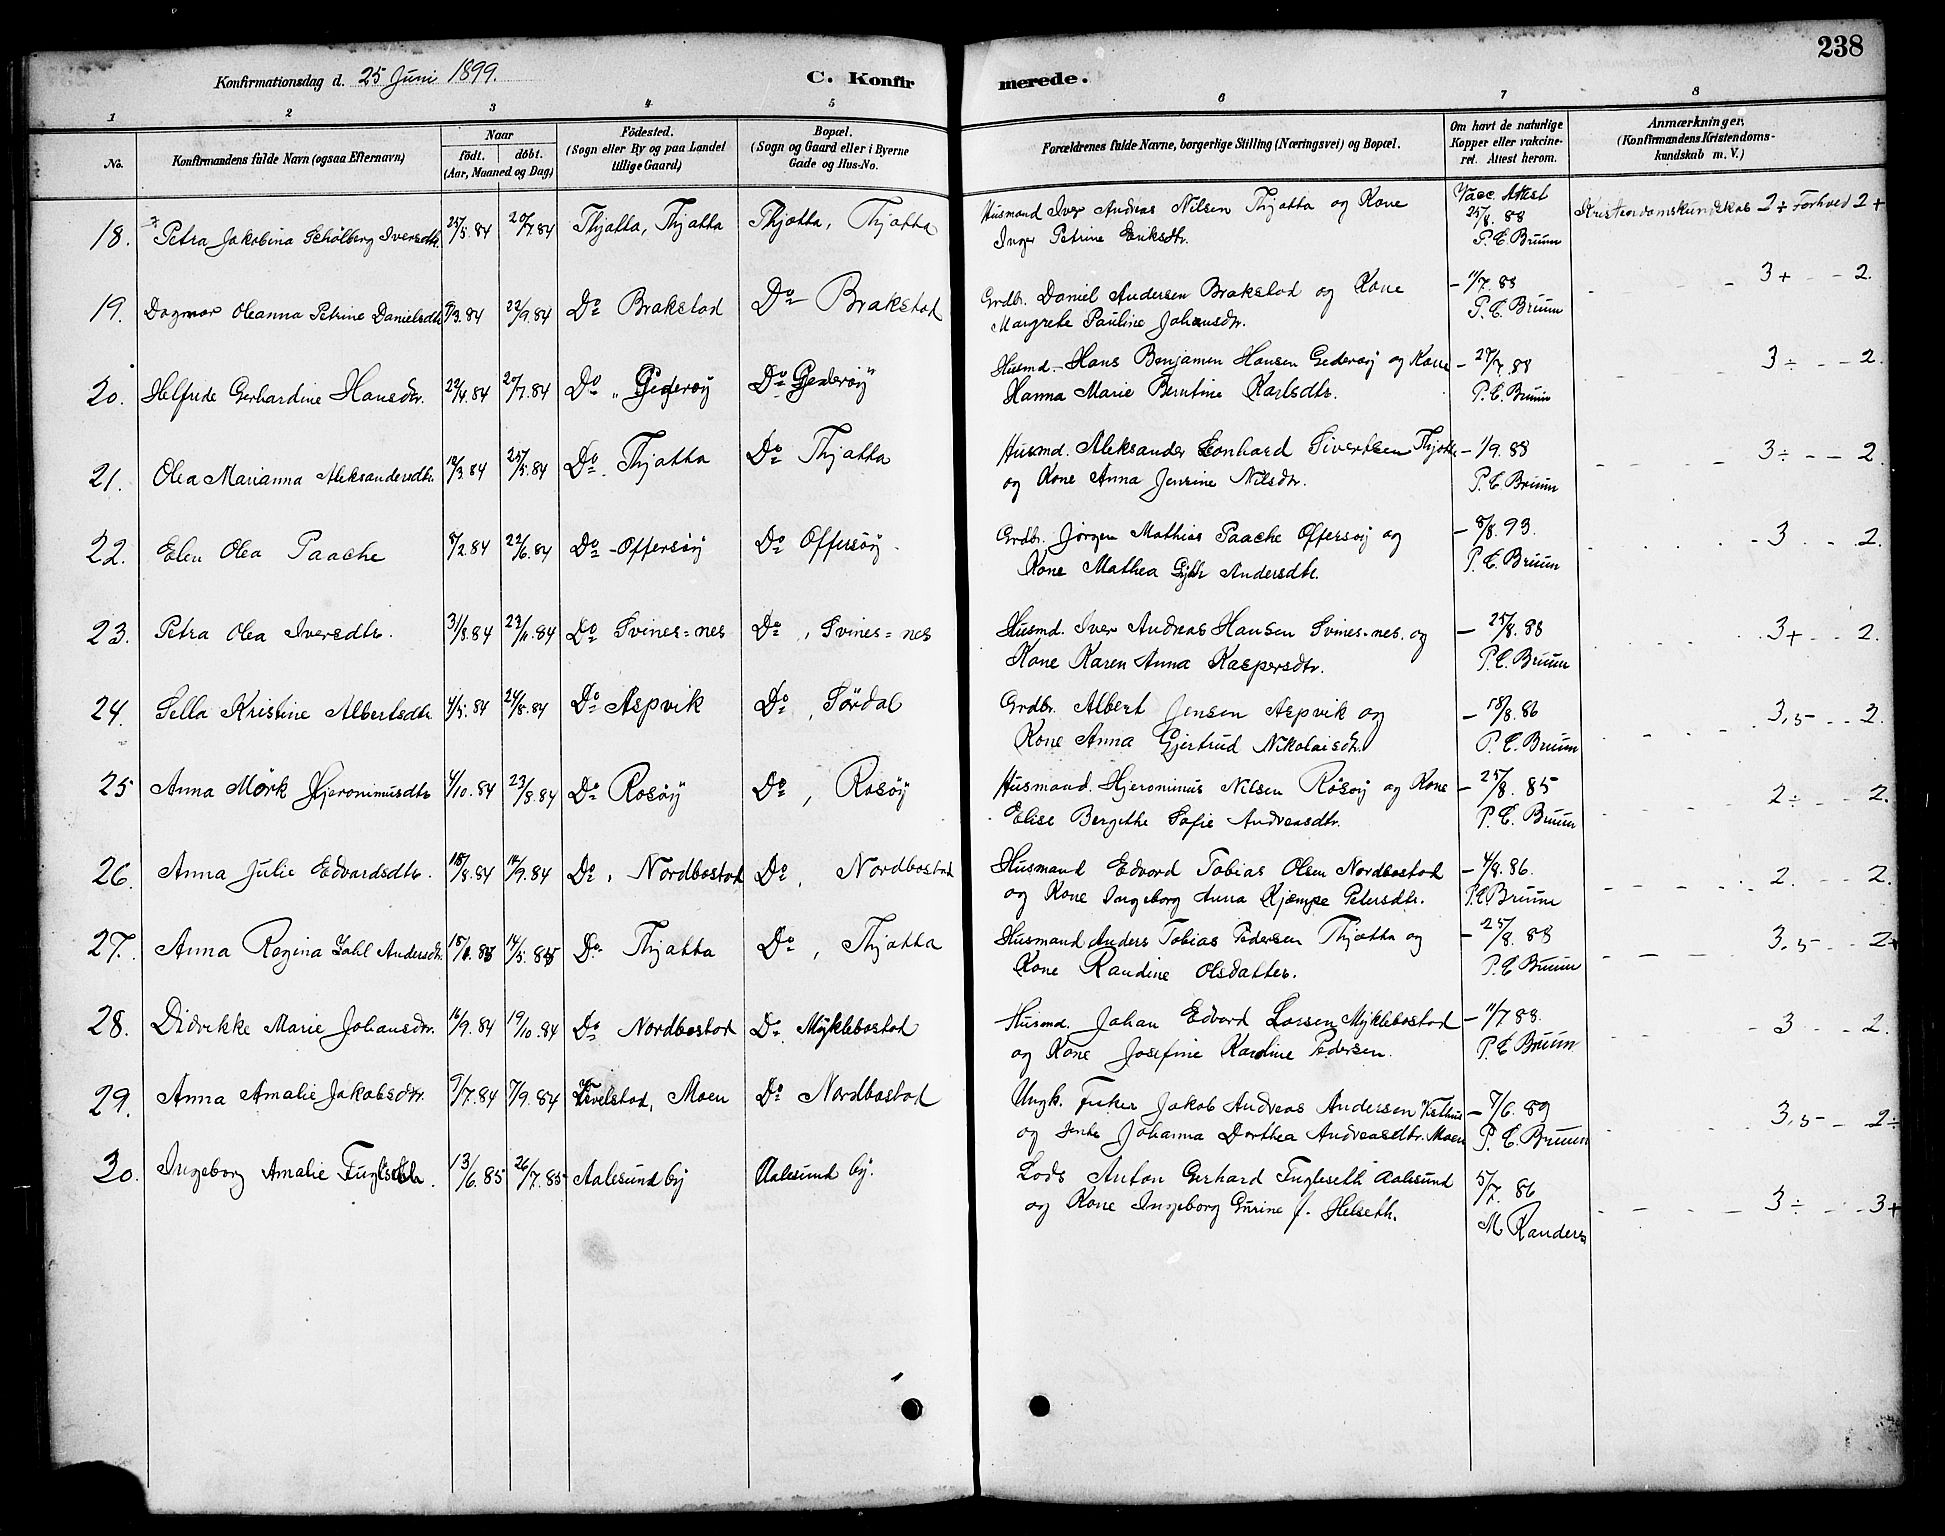 238
Konfirmationsdag d. 25 Juni 1899.
C. Konfirmerede.
1 2 3 4 5 6 7 8
No.
Konfirmandens fulde Navn (ogsaa Efternavn)
Naar
födt. döbt.
(Aar, Maaned og Dag)
Födested.
(Sogn eller By og paa Landet
tillige Gaard)
Bopæl.
(Sogn og Gaard eller i Byerne
Gade og Hus-No.
Forældrenes fulde Navne, borgerlige Stilling (Næringsvei) og Bopæl.
Om havt de naturlige
Kopper eller vakcine-
ret. Attest herom.
Anmærkninger.
(Konfirmandens Kristendoms-
kundskab m. V.)
18. Petra Jakobina Schølberg Iversdtr. 25/5.84 20/7.84 Thjøtta, Thjøtta Thjøtta, Thjøtta Husmand Iver Andreas Nilsen Thjøtta og Kone Vacc. Attest Kristendomskundskab 2÷ Forhved 2+
Inger Petrine Eriksdtr. 25/8. 88
P. C. Bruun
19. Dagmar Oleanna Petrine Danielsdtr. 9/3.84 22/9.84 Do Brakstad Do Brakstad Grdbr. Daniel Andersen Brakstad og Kone – 11/7.88 3+ – – 2.
Margrete Pauline Johansdtr. P. C. Bruun
20. Helfrede Gerhardine Hansdtr. 22/4.84 20/7.84 Do „ Gederøÿ Do Gederøÿ Husmd. Hans Benjamin Hansen Gederøÿ og Kone – 27/7.88 3÷ – – 2.
Hanna Marie Berntine Karlsdtr. P. C. Bruun
21. Olea Marianna Aleksandersdtr. 12/3.84 25/5.84 Do. Thjøtta Do Thjøtta Husmd. Aleksander Leonhard Sivertsen Thjøtta – 1/9.88 3÷ – – 2.
og Kone Anna Jensine Nilsdtr. P. C. Bruun
22. Elen Olea Paache 8/2.84 22/6.84 Do - Offersøÿ Do Offersøÿ Grdbr. Jørgen Mathias Paache Offersøÿ og – 8/8.93. 3 2.
Kone Mathea Andersdtr. P. C. Bruun
23. Petra Olea Iversdtr. 3/8.84 23/11.84 Do Svines=nes Do, Svines=nes Husmd. Iver Andreas Hansen Svines=nes. og – 25/8.88 3+ 2.
Kone Karen Anna Kaspersdtr. P. C. Bruun
24. Sella Kristine Albertsdtr. 4/5.84 24/8.84 Do Aspvik Do, Sørdal Grdbr. Albert Jensen Aspvik og – 18/8.86 3,5 – – 2.
Kone Anna Gjertrud Nikolaisdtr. P. C. Bruun
25 Anna Mørk Hjeronimusdtr 4/10.84 23/8.84 Do Rosøÿ Do, Rosøÿ Husmand. Hjeronimus Nilsen Rosøÿ og Kone – 25/8. 85 2÷ – – 2.
Elise Bergithe Sofie Andreasdtr. P. C. Bruun
26. Anna Julie Edvardsdtr. 18/8.84 14/9.84 Do, Nordbostad Do, Nordbostad Husmand Edvard Tobias Olsen Nordbostad – 4/8.86. 2. 2.
og Kone Ingeborg Anna Kjæmpe Petersdtr. P. C. Bruun
27. Anna Regina Zahl Andersdtr. 14/5.85 Do Thjøtta Do, Thjøtta Husmand Anders Tobias Pedersen Thjøtta og – 25/8. 88 3,5 – – 2+
Kone Randine Olsdatter. P. C. Bruun
28. Didrikke Marie Johansdtr. 16/9.84 19/10.84 Do Nordbostad Do. Mÿklebostad Husmd. Johan Edvard Larsen Mÿklebostad – 11/7 88. 3 2.
og Kone Josefine Karoline Pedersen. P. C. Bruun
29. Anna Amalie Jakobsdtr. 9/7.84 7/9.84 Tævelstad, Moen Do Nordbostad Ungk. Fisker Jakob Andreas Andersen – 7/6.89 3,5 – 2÷
og Jente Johanna Dorthea Andreasdtr. Moen P. C. Bruun
30. Ingeborg Amalie Fuglseth. 13/6.85 26/7.85 Aalesund by Aalesund by. Lods Anton Gerhard Fugleseth Aalesund 5/7. 86 3÷ 3+
og Kone Ingeborg Gurine f. Helseth. M Randers